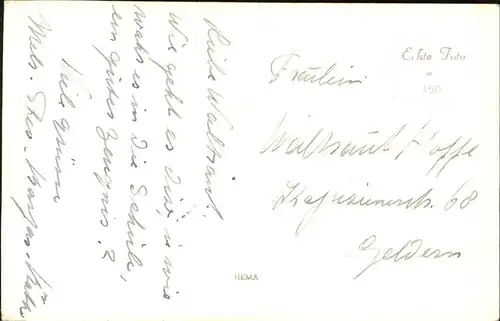 Liebe Waltraut!
Wie geht es Dir, u. wie
wahr es in die Schule,
ein gutes Zeugnis?
Viele Grüsse
Theo
Echte Foto
Fräulein
Waltraut Hoffe
Kapuzinerstr. 68
Geldern
HEMA